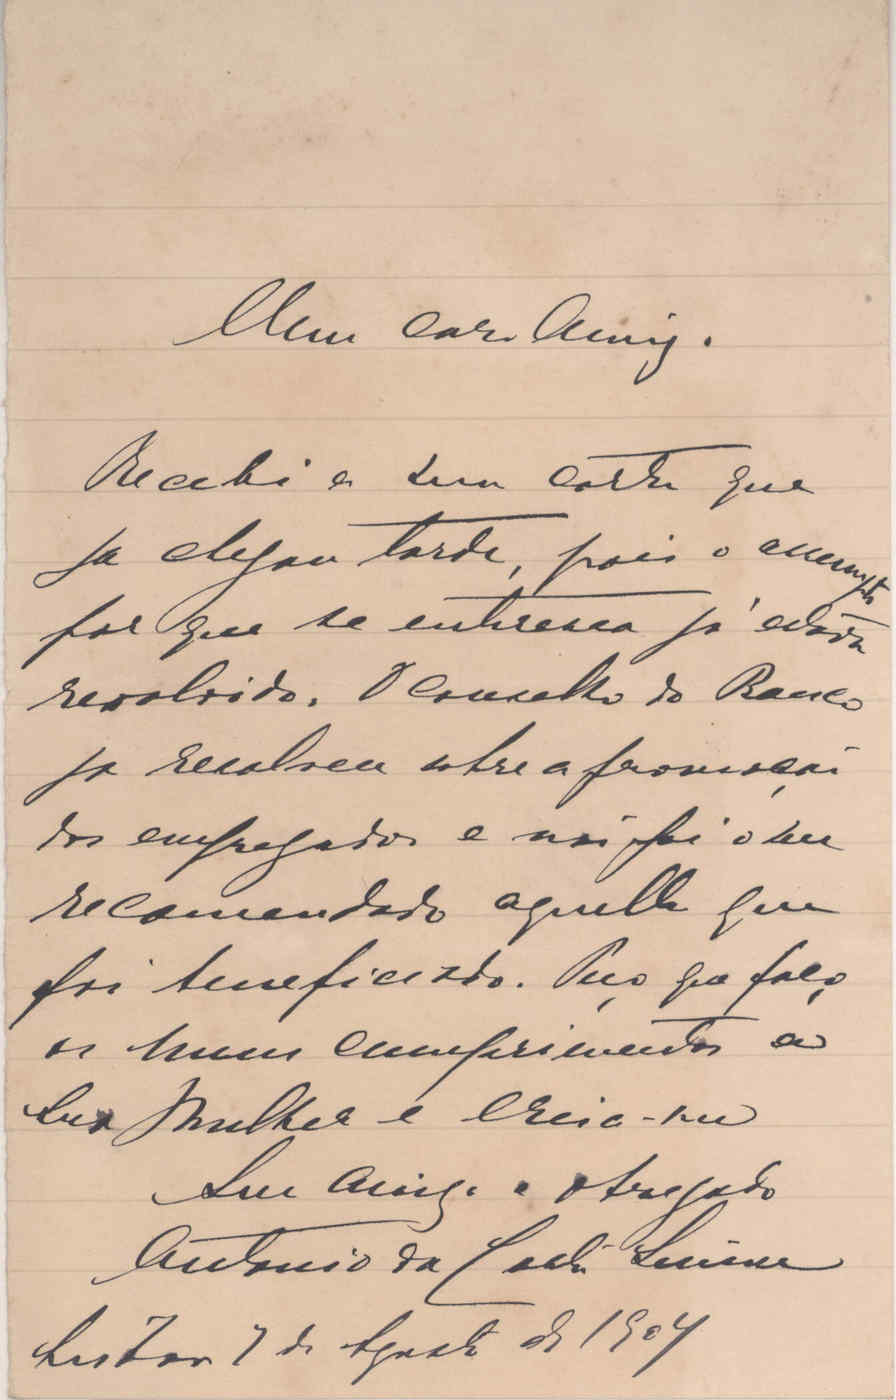 Meu caro Amigo.
Recebi a sua carta que
ja chegou tarde, pois o assumpto
por que se enteressa já estava
resolvido. O conselho do Banco
ja resolveu sobre a promoção
dos empregados e não foi o seu
recomendado aquelle que
foi beneficiado. Peço que faça
os meus cumprimentos a
sua Mulher e creia-me
Seu Amigo e obrigado
Antonio da Costa
Lisboa 7 de Agosto de 1904